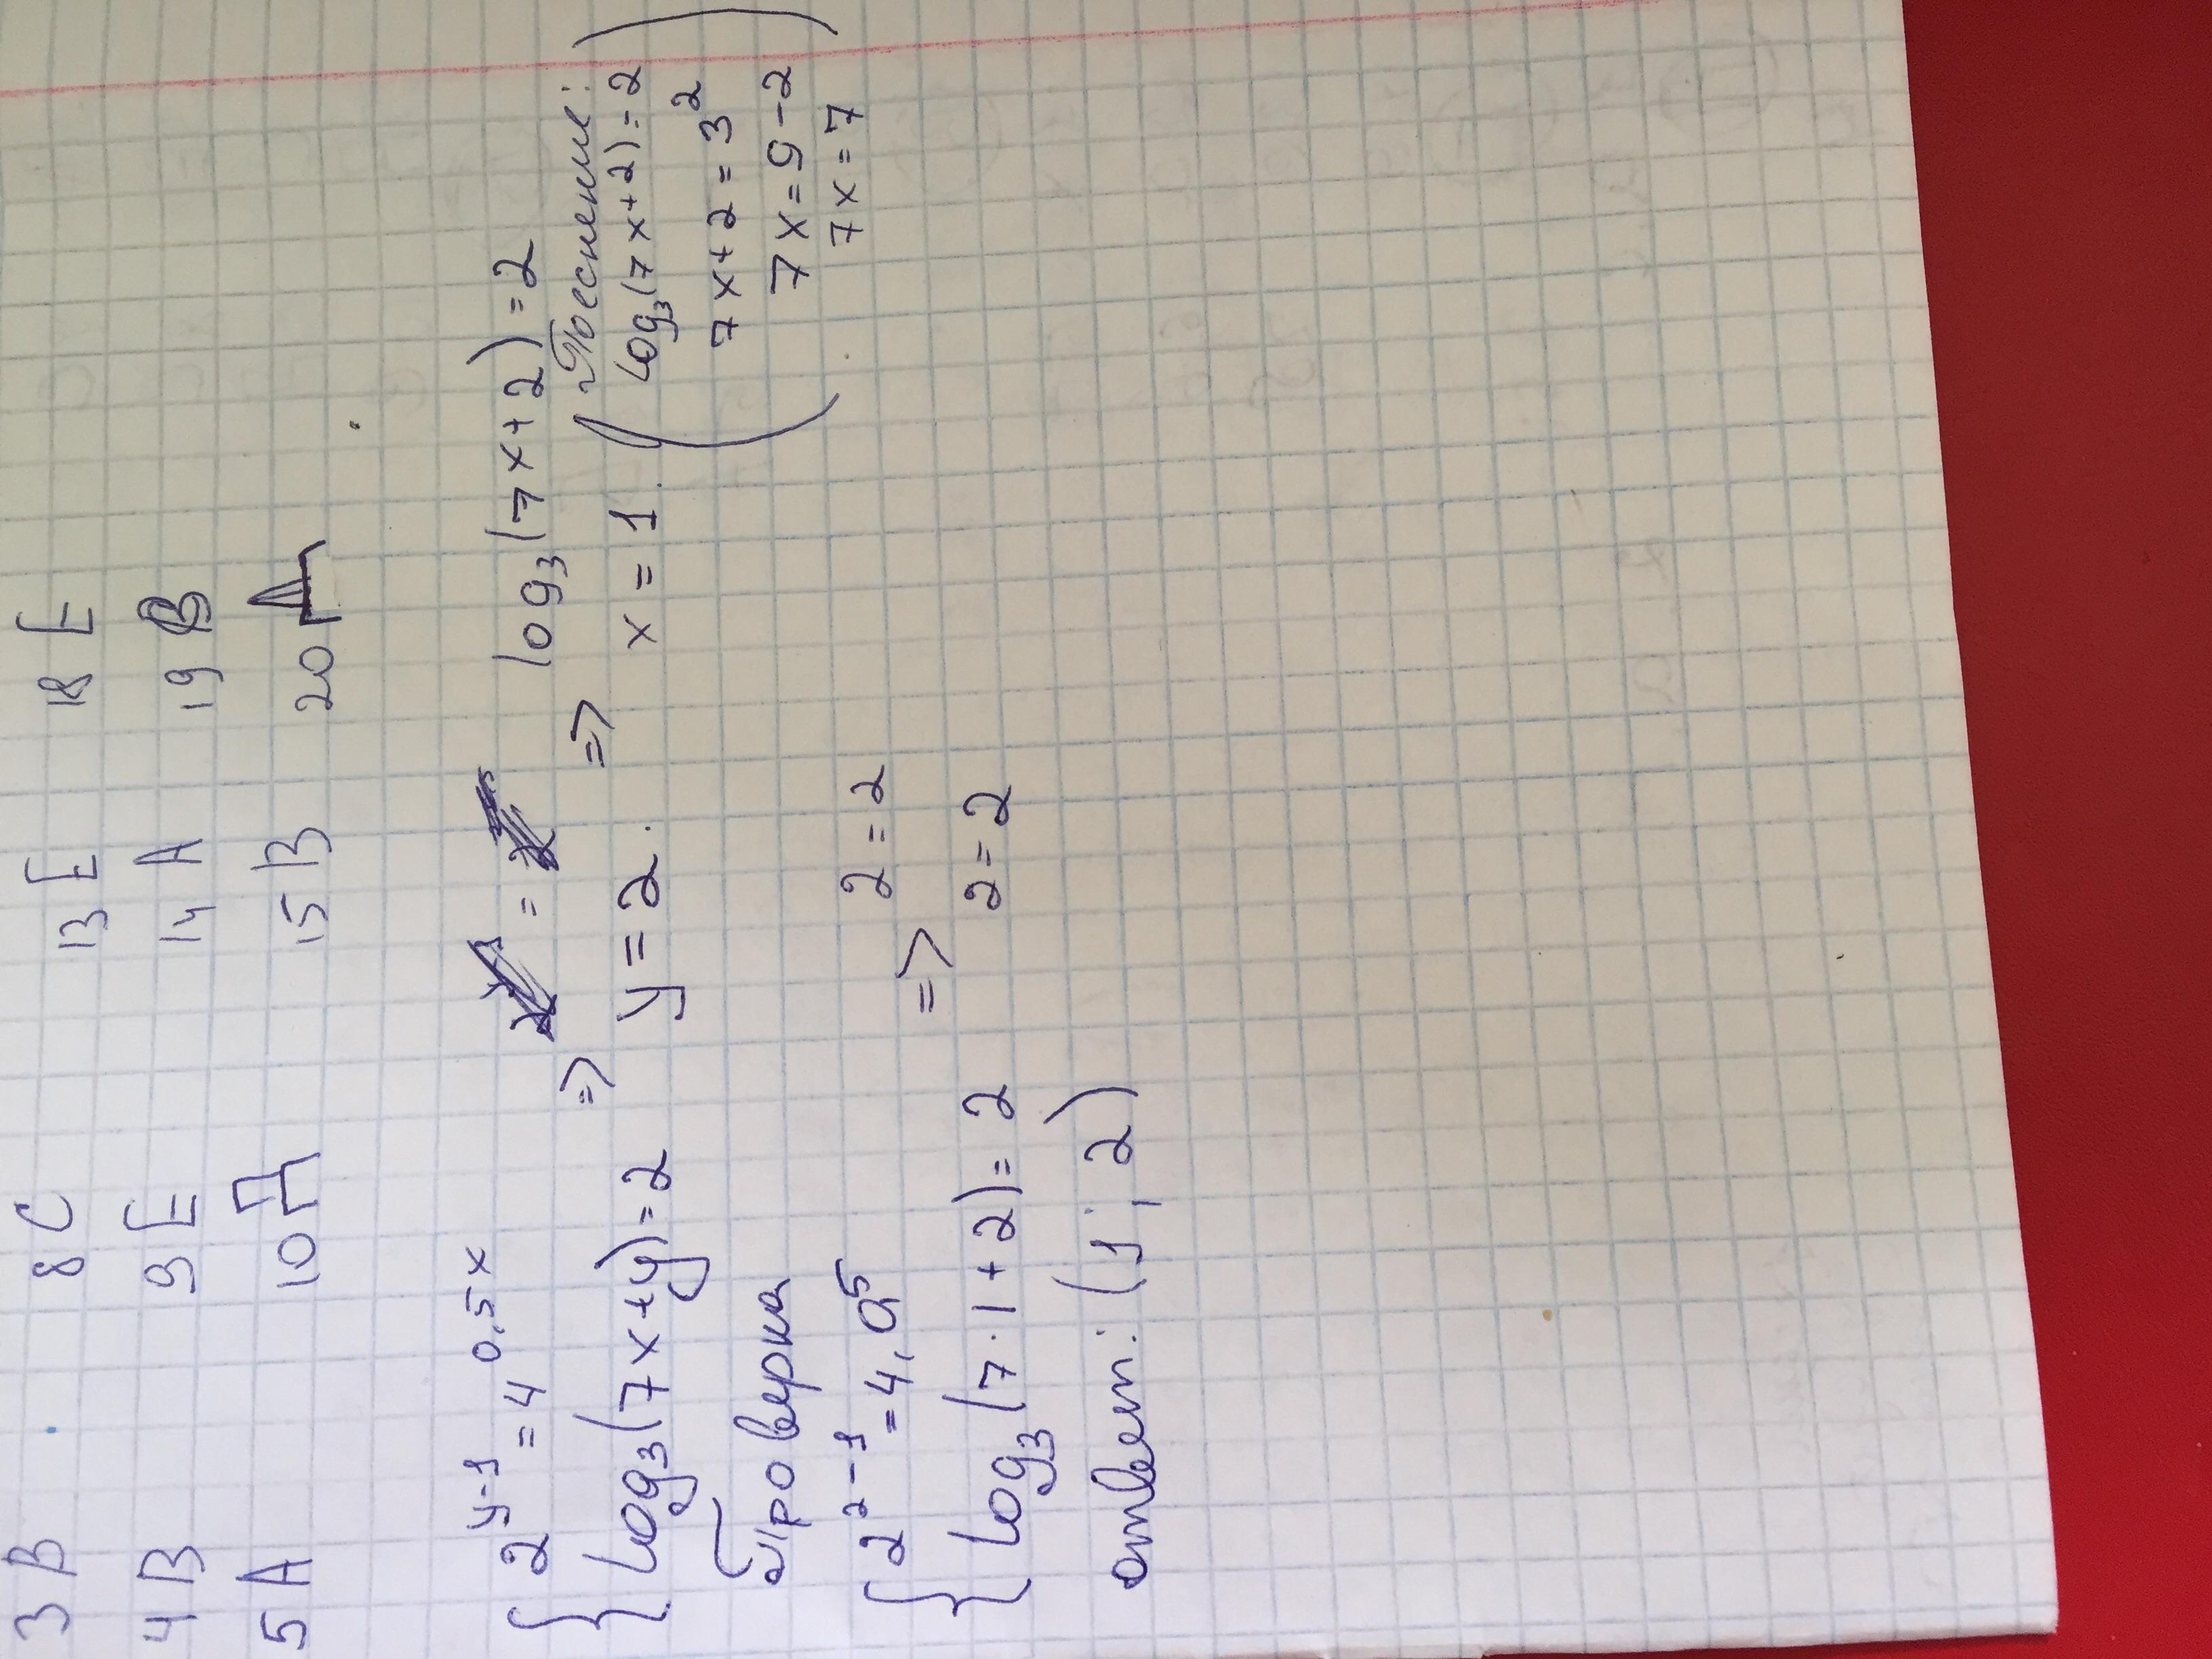 3 B 8 C 13 E 18 E
4 B 9 E 14 A 19 B
5 A 10 Д 15 B 20 Д
2^(y-1) = 4^(0,5x) => = log₃(7x+2)=2
log₃(7x+y)=2 y=2. => x=1. (Пояснение:
log₃(7x+2)=2
7x+2=3²
7x=9-2
7x=7)
Проверка
2^(2-1) = 4^(0,5) => 2=2
log₃(7·1+2)=2 2=2
ответ: (1; 2)